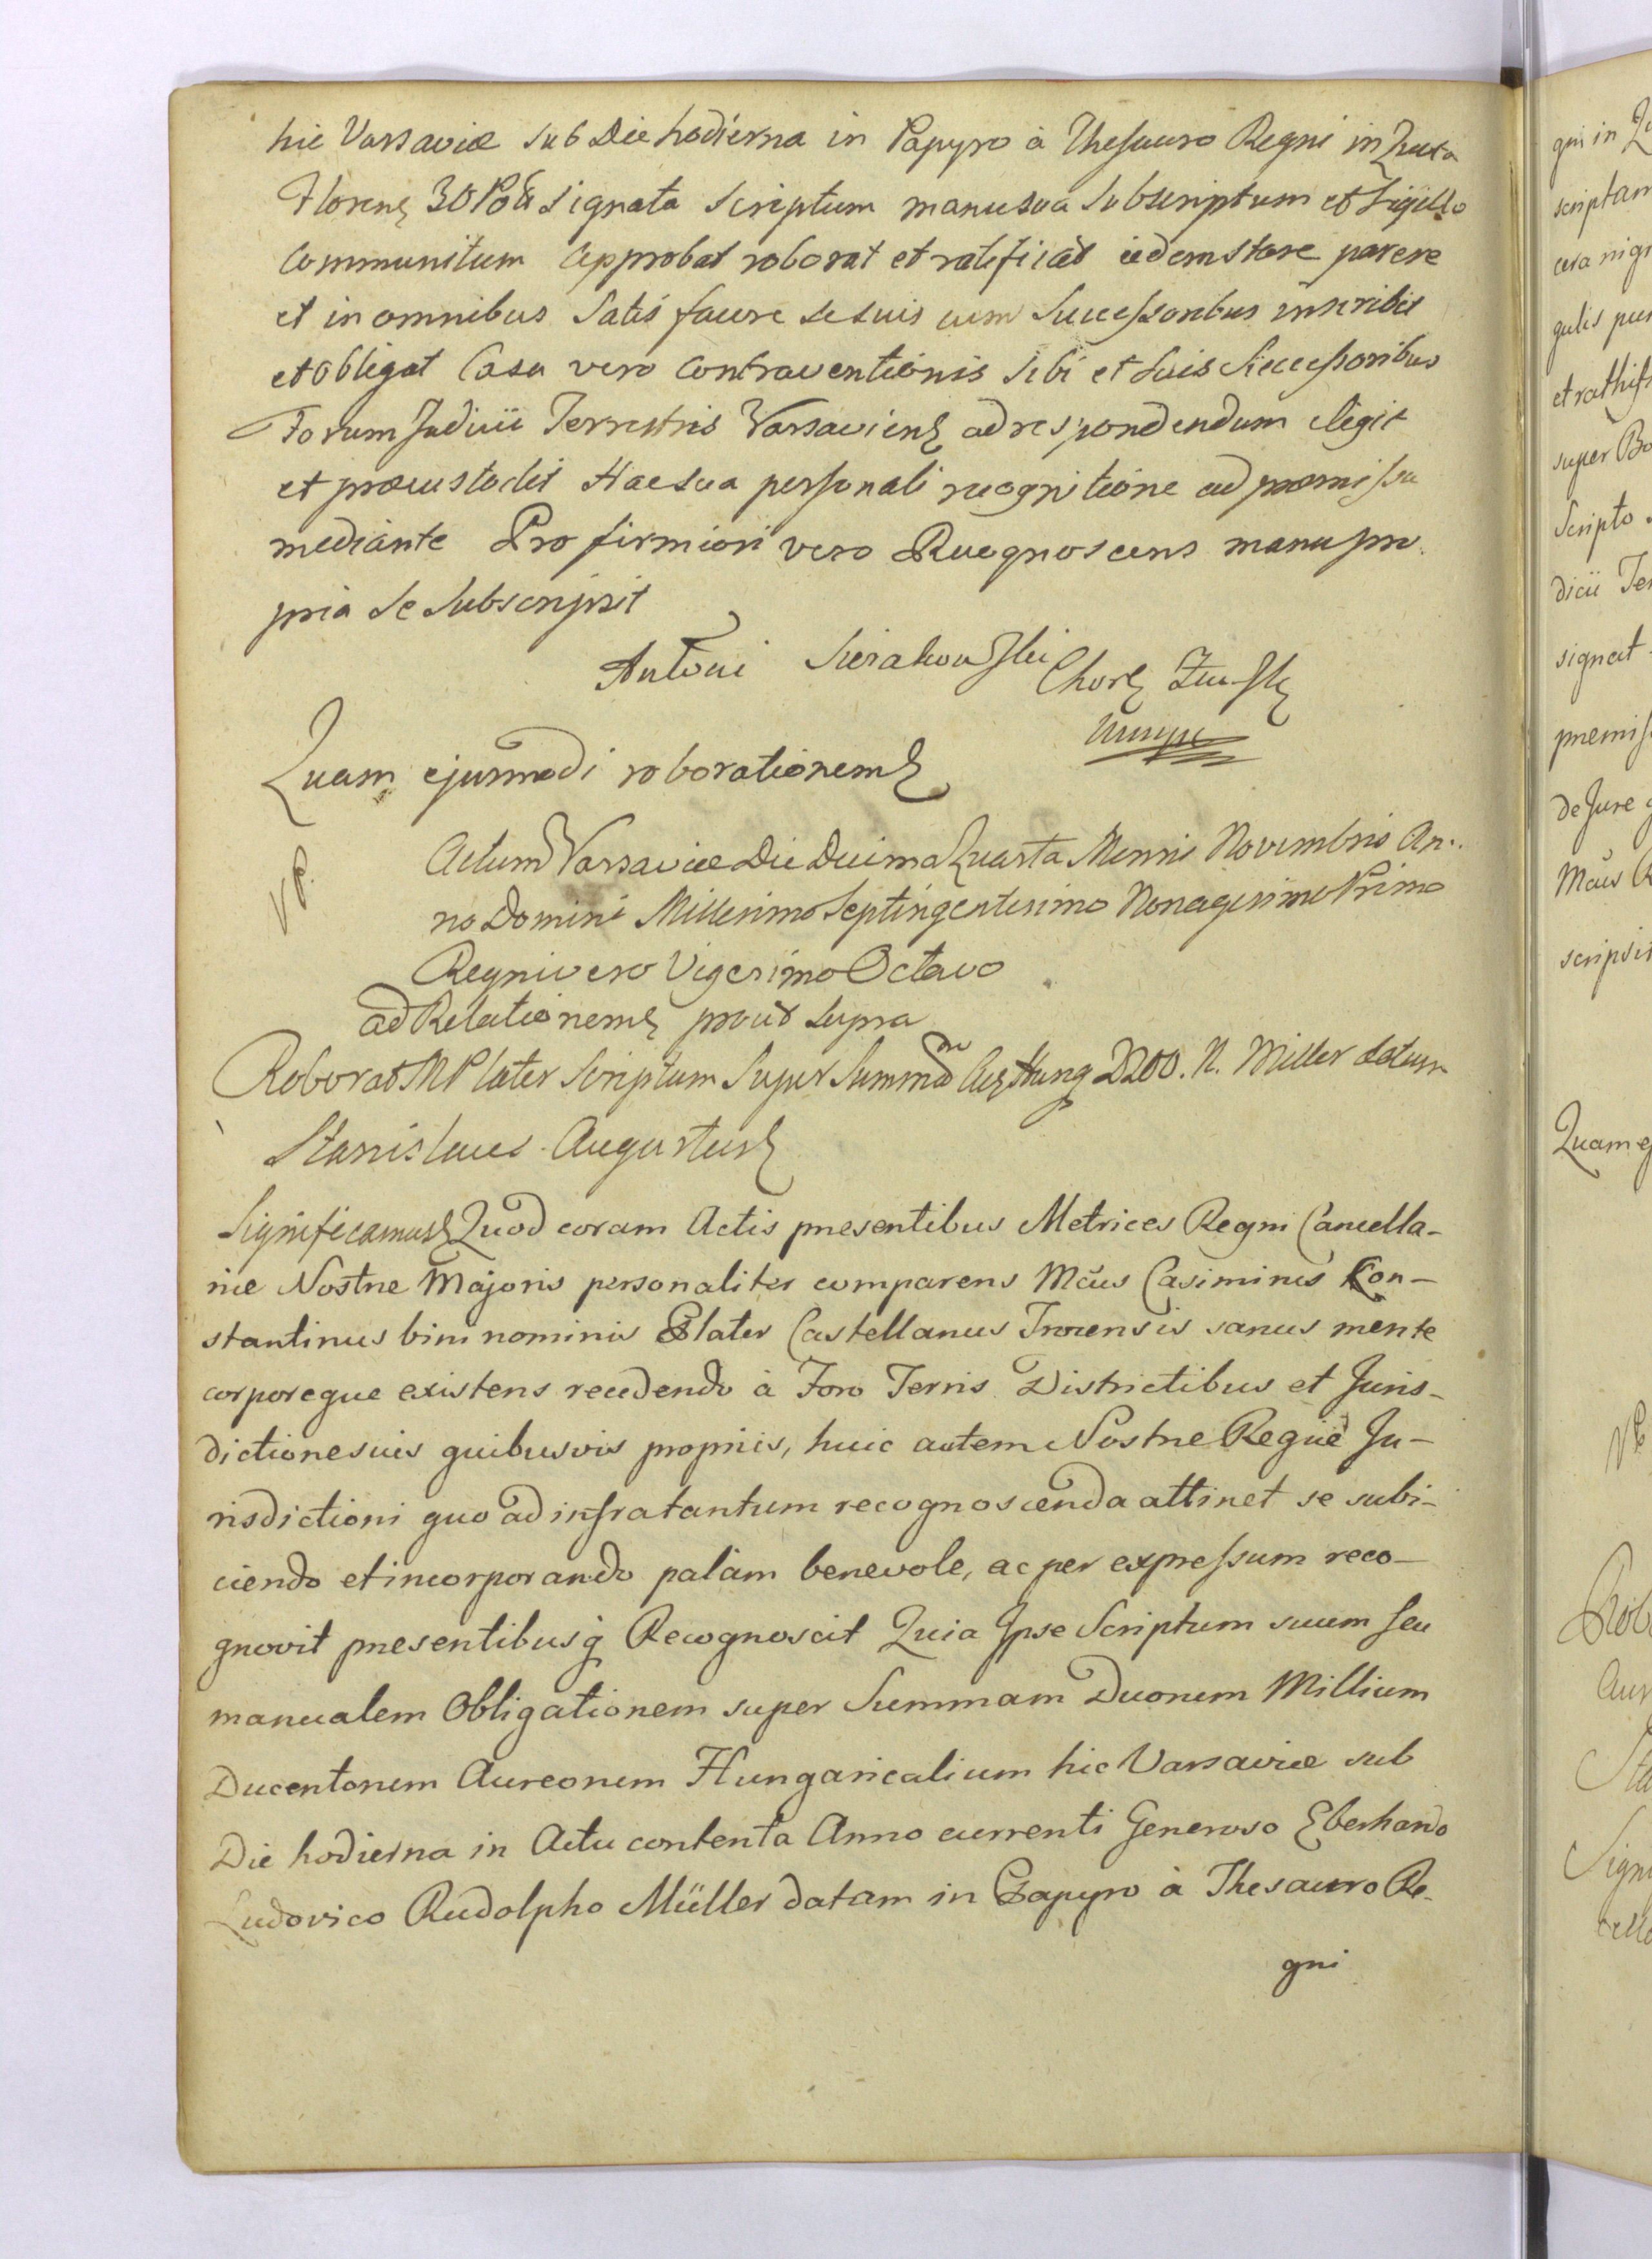 hic Varsaviæ sub Die hodierna in Papyro à Thesauro Regni in Quota
Floren 30 Pol signata scriptum manu sua subscriptum et Sigillo
Communitum approbat roborat et ratificat eidem stare parere
et in omnibus Satis facere se suis cum Successoribus inscribit
et obligat Casu vero Contraventionis Sibi et Suis Successoribus
Forum Judicii Terrestris Varsaviens ad respondendum elegit
et præcustodit Hac sua personali recognitione ad præmissa
mediante Pro firmiori vero Recognoscens manu pro
pria se subscripsit
Antoni Sierakowski Chor
Quam ejusmodi roborationem
VP.
Actum Varsaviæ Die Decima Quarta Mensis Novembris An-
no Domini Millesimo Septingentesimo Nonagesimo Primo
Regni vero Vigesimo Octavo
ad Relationem prout supra
Roborat M Plater Scriptum Super Summam Aur Hung 2200. N. Miller datum
Stanislaus Augustus
Significamus Quod coram Actis presentibus Metrices Regni Cancella-
riæ Nostræ Majoris personaliter comparens Mcus Casimirus Con-
stantinus bini nominis Plater Castellanus Trocensis sanus mente
corporeque existens recedendo à Foro Terris Districtibus et Juris-
dictione suis quibusvis propriis, huic autem Nostre Regiæ Ju-
risdictioni quo ad infra tantum recognoscenda attinet se subi-
ciendo et incorporando palàm benevole, ac per expressum reco-
gnovit presentibusq Recognoscit Quia Ipse Scriptum suum seu
manualem Obligationem super Summam Duorum Millium
Ducentorum Aureorum Hungaricalium hic Varsaviæ sub
Die hodierna in Actu contenta Anno currenti Generoso Eberhardo
Ludovico Rudolpho Müller datam in Papyro à Thesauro Re-
gni
gni in
scriptam
cera nigr
gulis
et rathif
super Bo
Scripto
dicii Ter
signat
premis
de Jure
Mcus
scripsit
Quam
VP
Rob
Aur
Sta
Signi